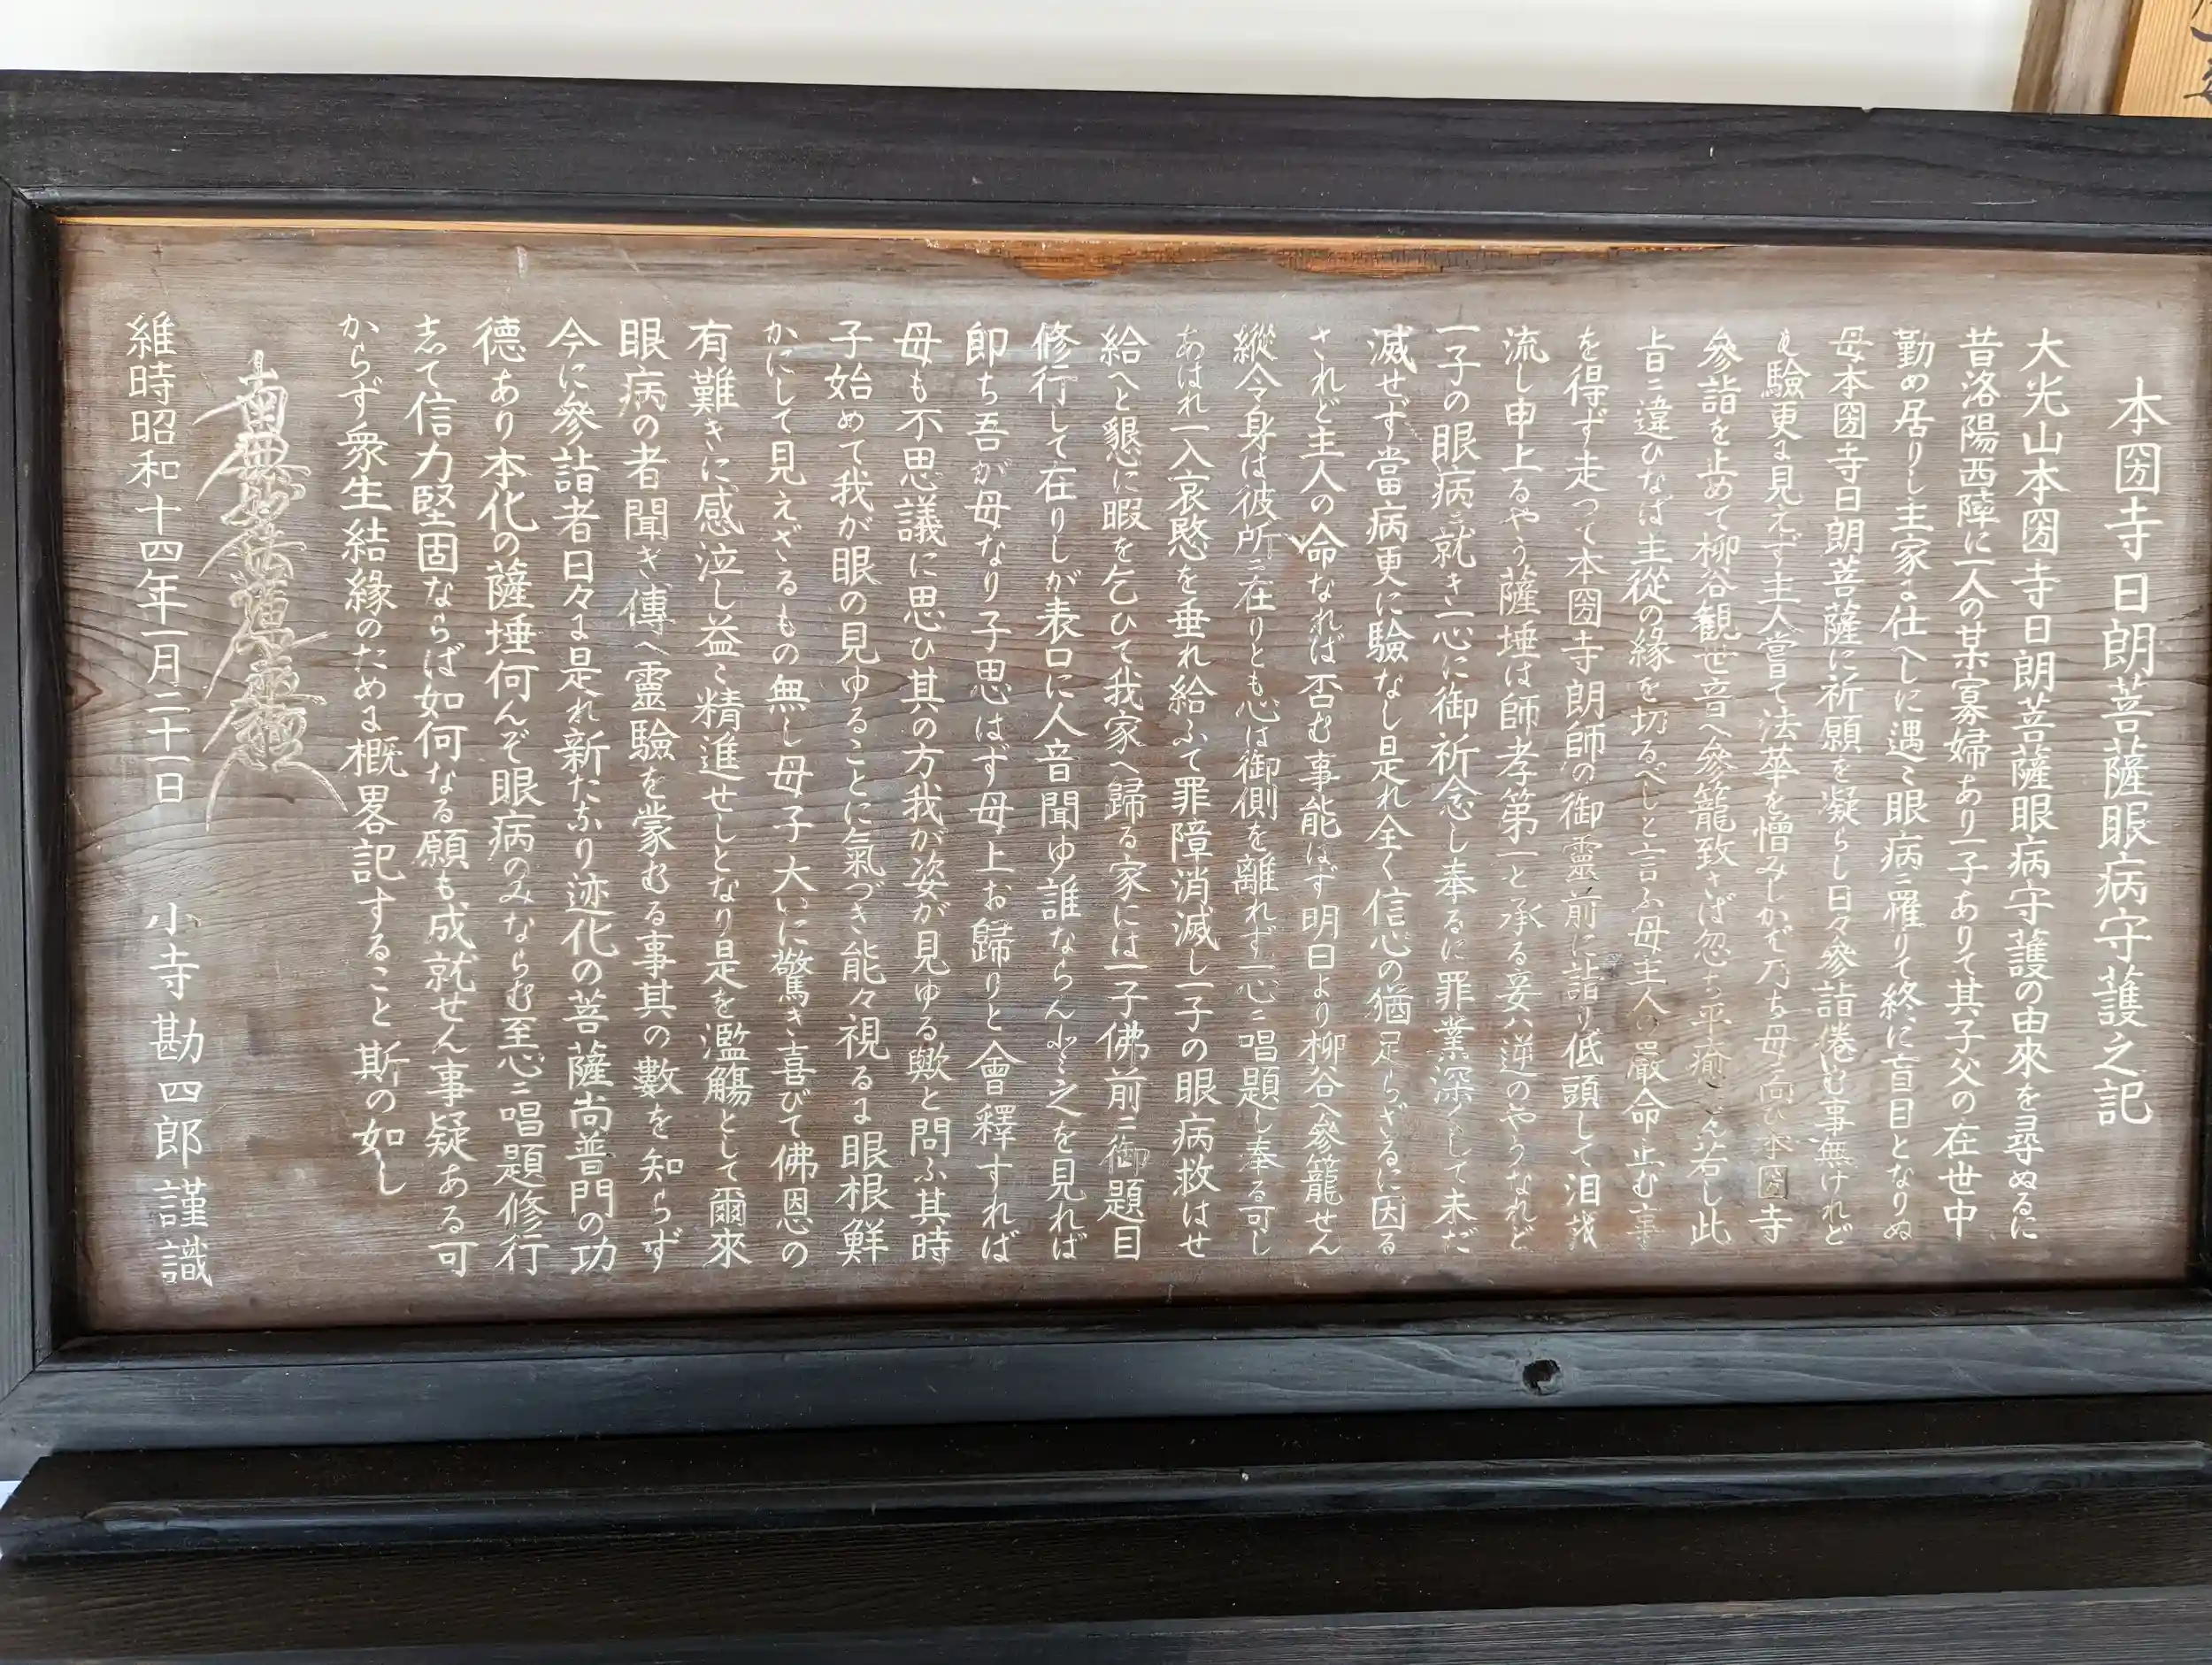 本圀寺日朗菩薩眼病守護之記
大光山本圀寺日朗菩薩眼病守護の由來を尋ぬるに
昔洛陽西陣に一人の某寡婦あり一子ありて其子父の在世中
勤め居りし主家に仕へしに遇々眼病ニ罹りて終に盲目となりぬ
母本圀寺日朗菩薩に祈願を凝らし日々參詣倦む事無けれど
も驗更に見えず主人嘗て法華を憎みしかど乃ち母ニ向ひ本圀寺
參詣を止めて柳谷観世音へ參籠致さば忽ち平癒せん若し此
旨ニ違ひなば主從の緣を切るべしと言ふ母主人の嚴命止む事
を得ず走つて本圀寺朗師の御靈前に詣り低頭して泪を
流し申上るやう薩埵は師孝第一と承る妾ハ逆のやうなれど
一子の眼病ニ就き一心に御祈念し奉るに罪業深くして未だ
滅せず當病更に驗なし是れ全く信心の猶足らざるに因る
されど主人の命なれば否む事能はず明日より柳谷へ參籠せん
縱令身は彼所ニ在りとも心は御側を離れず一心ニ唱題し奉る可し
あはれ一入哀愍を垂れ給ふて罪障消滅し一子の眼病救はせ
給へと懇に暇を乞ひて我家へ歸る家には一子佛前ニ御題目
修行して在りしが表口に人音聞ゆ誰ならんと之を見れば
即ち吾が母なり子思はず母上お歸りと會釋すれば
母も不思議に思ひ其の方我が姿が見ゆる歟と問ふ其時
子始めて我が眼の見ゆることに氣づき能々視るに眼根鮮
かにして見えざるもの無し母子大いに驚き喜びて佛恩の
有難きに感泣し益々精進せしとなり是を濫觴として爾來
眼病の者聞き傳へ靈驗を蒙むる事其の數を知らず
今に參詣者日々に是れ新たなり迹化の菩薩尚普門の功
德あり本化の薩埵何んぞ眼病のみならむ至心ニ唱題修行
志て信力堅固ならば如何なる願も成就せん事疑ある可
からず衆生結緣のために概畧記すること斯の如し
南無妙法蓮華經
維時昭和十四年一月二十一日 小寺勘四郎謹識